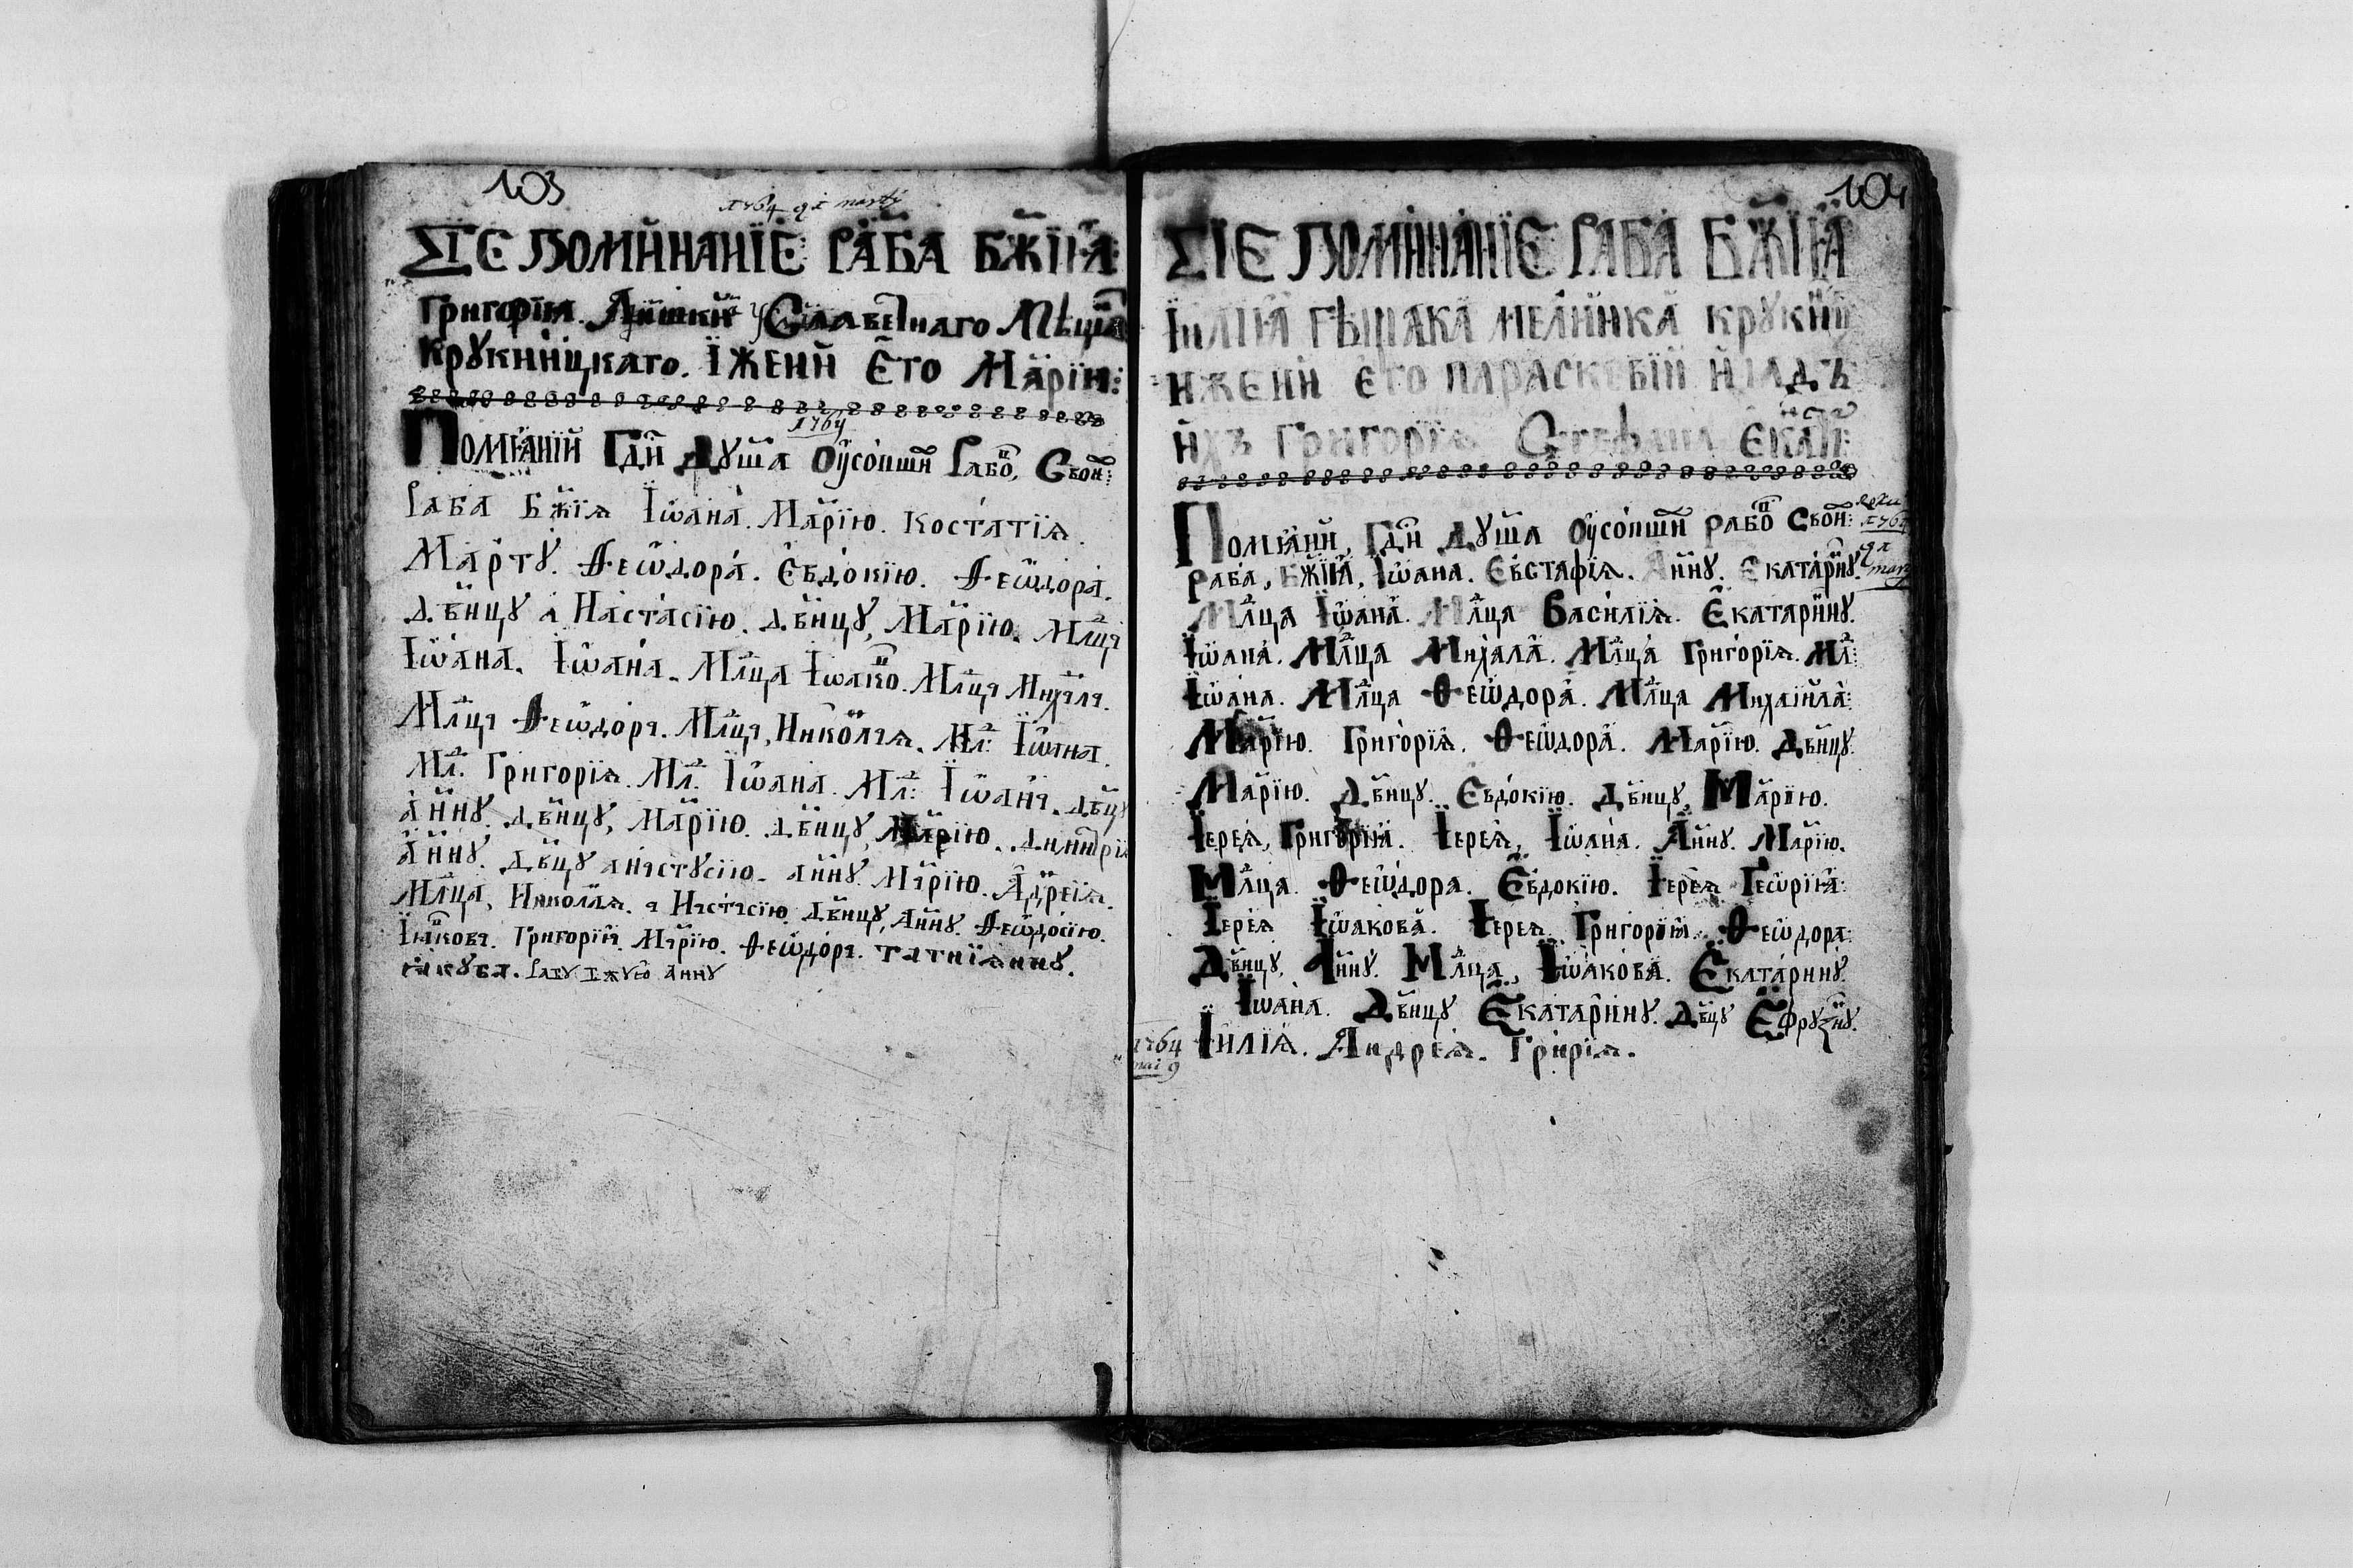 103
1764
Сїе Поминанїе раба Бжїѧ
Григорїѧ Славетнаго
Крукницкаго. Ї жени Єго Марїи:
1764
Помѧни Гди Душа оусопши рабо, Свои:
раба Бжїѧ Їѡана. Марїю. Костатїѧ.
Марту. Ѳеѡдора. Євдокїю. Ѳеѡдора.
двицу а Настасїю. двицу, Марїю. Млца
Їѡана. Їѡана. Млца Їѡако. Млца Михала.
Млца Ѳеѡдора. Млца, Николаѧ. Мл: Їѡана.
Мл. Григорїѧ. Мл. Їѡана. Мл: Їѡана. двцу
Анну. двицу, Марїю. двицу, Марїю.
Анну. двцу анастусїю. анну. Марїю. Адреїѧ.
Млца, Николаѧ. а Настасїю двицу, Анну. Ѳеѡдосїю.
Їѧкова. Григорїѧ. Марїю. Ѳеѡдора. татиїѧнну.
ѧкува. рабу бжую анну
104
Сїе Поминанїе раба Бжїѧ
Їилїѧ мелника крукниц
и жени єго параскевїи и чадъ
ихъ Григорїѧ Стефана Єкат:
Помѧни, Гди Душа оусопши рабо Свои:
1764
раба, Бжїѧ, Їѡана. Євстафїѧ. Анну. Єкатарину.
Млца Їѡана. Млца Василїѧ. Єкатарину.
Їѡана. Млца Михала. Млца Григорїѧ. Мл:
Їѡана. Млца Ѳеѡдора. Млца Михаїила:
Марїю. Григорїѧ. Ѳеѡдора. Марїю. Двицу.
Марїю. Двицу. Євдокїю. Двицу, Марїю.
Їереѧ, Григорїѧ. Їереѧ, Їѡана. Анну. Марїю.
Млца. Ѳеѡдора. Євдокїю. Їереѧ Геѡргїѧ:
Їереѧ Їѡакова. Їереѧ Григорїѧ. Ѳеѡдора:
Двицу, Анну. Млца, Їѡакова. Єкатарину.
Їѡана. Двицу Єкатарину. Двцу Єфрузину.
1764
Їилїѧ. Андреѧ. Грирїѧ.